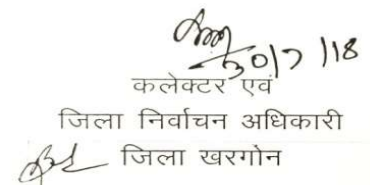 30/7/18
कलेक्टर एवं
जिला निर्वाचन अधिकारी
जिला खरगोन